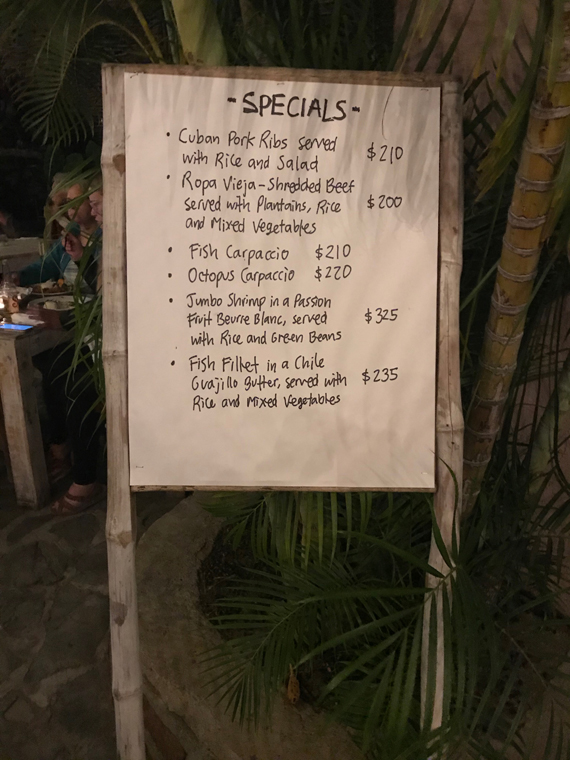 - SPECIALS -
• Cuban Pork Ribs served
with Rice and Salad $210
• Ropa Vieja - Shredded Beef
served with Plantains, Rice $200
and Mixed Vegetables
• Fish Carpaccio $210
• Octopus Carpaccio $220
• Jumbo Shrimp in a Passion
Fruit Beurre Blanc, served $325
with Rice and Green Beans
• Fish Fillet in a Chile
Guajillo Butter, served with $235
Rice and Mixed Vegetables